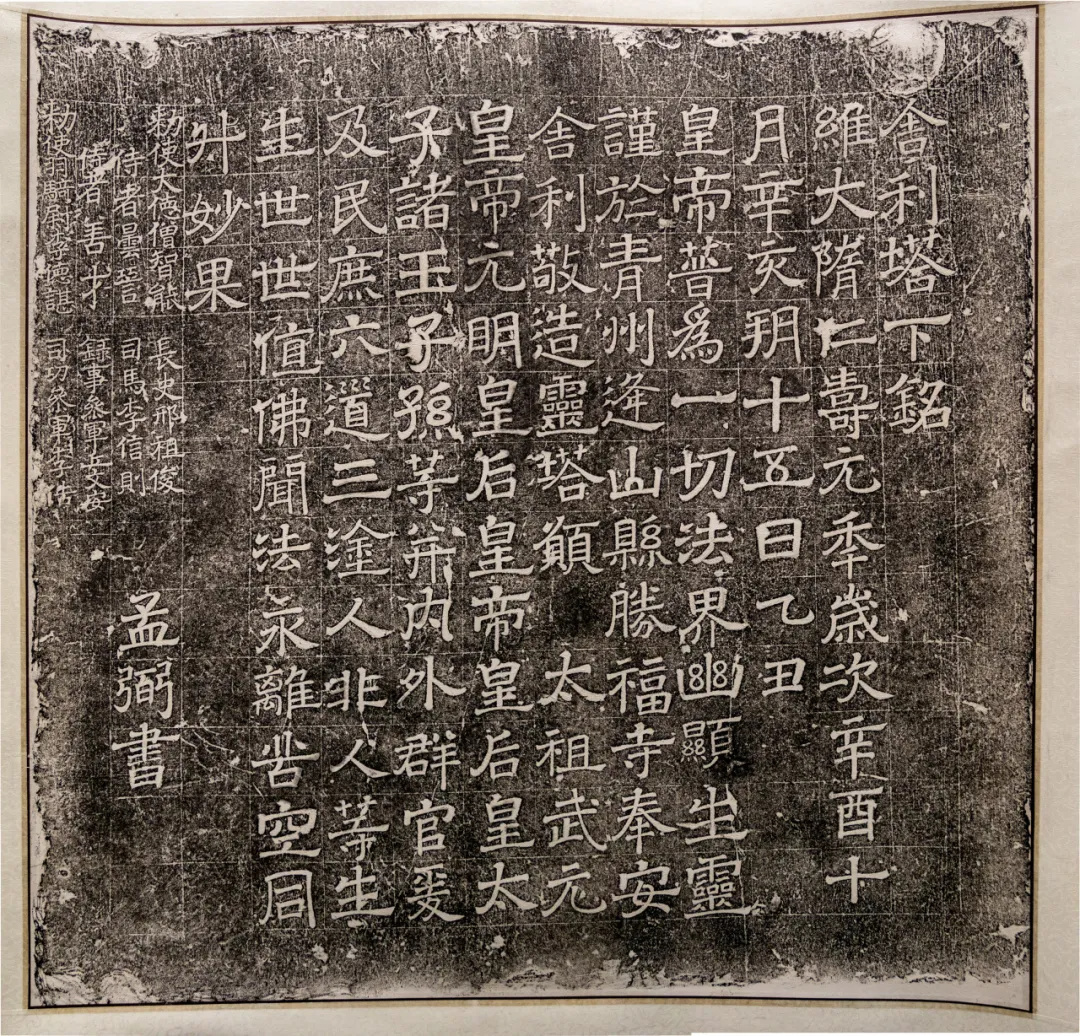 舍利塔下銘
維大隋仁壽元秊歲次辛酉十
月辛亥朔十五日乙丑
皇帝普爲一切法界幽顯生靈
謹於青州逄山縣勝福寺奉安
舍利敬造靈塔願太祖武元
皇帝元明皇后皇帝皇后皇太
子諸王子孫等并内外群官爰
及民庶六道三塗人非人等生
生世世值佛聞法永離苦空同
升妙果
孟弼書
勑使大德僧智能 長史邢祖俊
侍者曇誓 司馬李信則
侍者善才 錄事參軍丘文安
勑使羽騎尉李德諶 司功參軍李佸